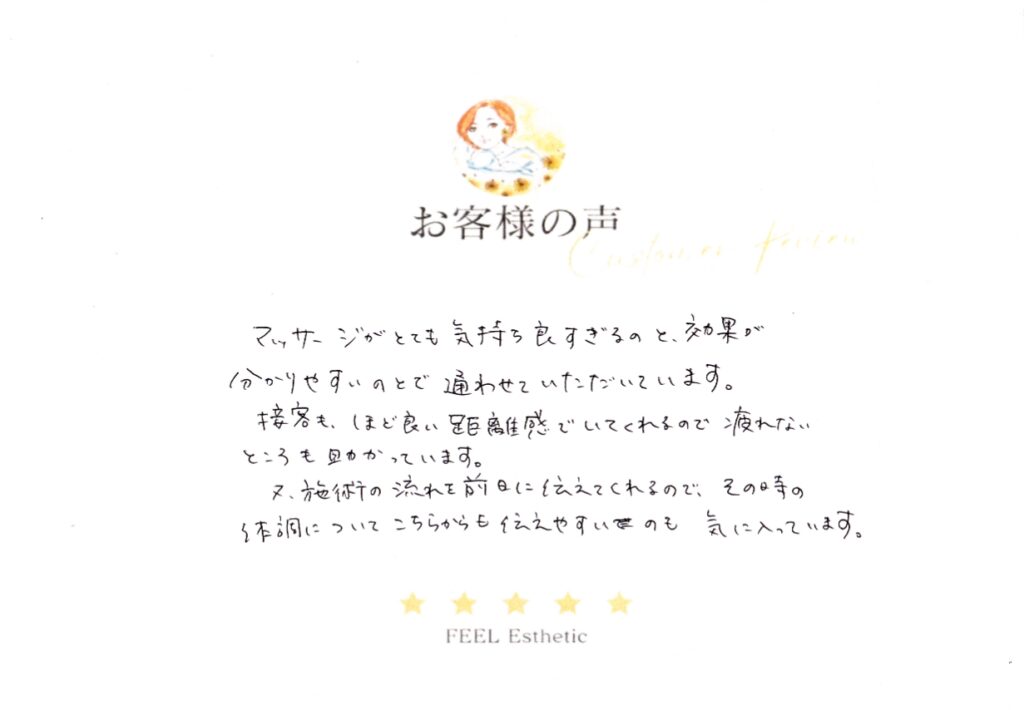 お客様の声
Customer Review
マッサージがとても気持ち良すぎるのと、効果が
分かりやすいのとで通わせていただいています。
接客も、ほど良い距離感でいてくれるので疲れない
ところも助かっています。
又、施術の流れを前日に伝えてくれるので、その時の
体調についてこちらからも伝えやすいのも気に入っています。
FEEL Esthetic